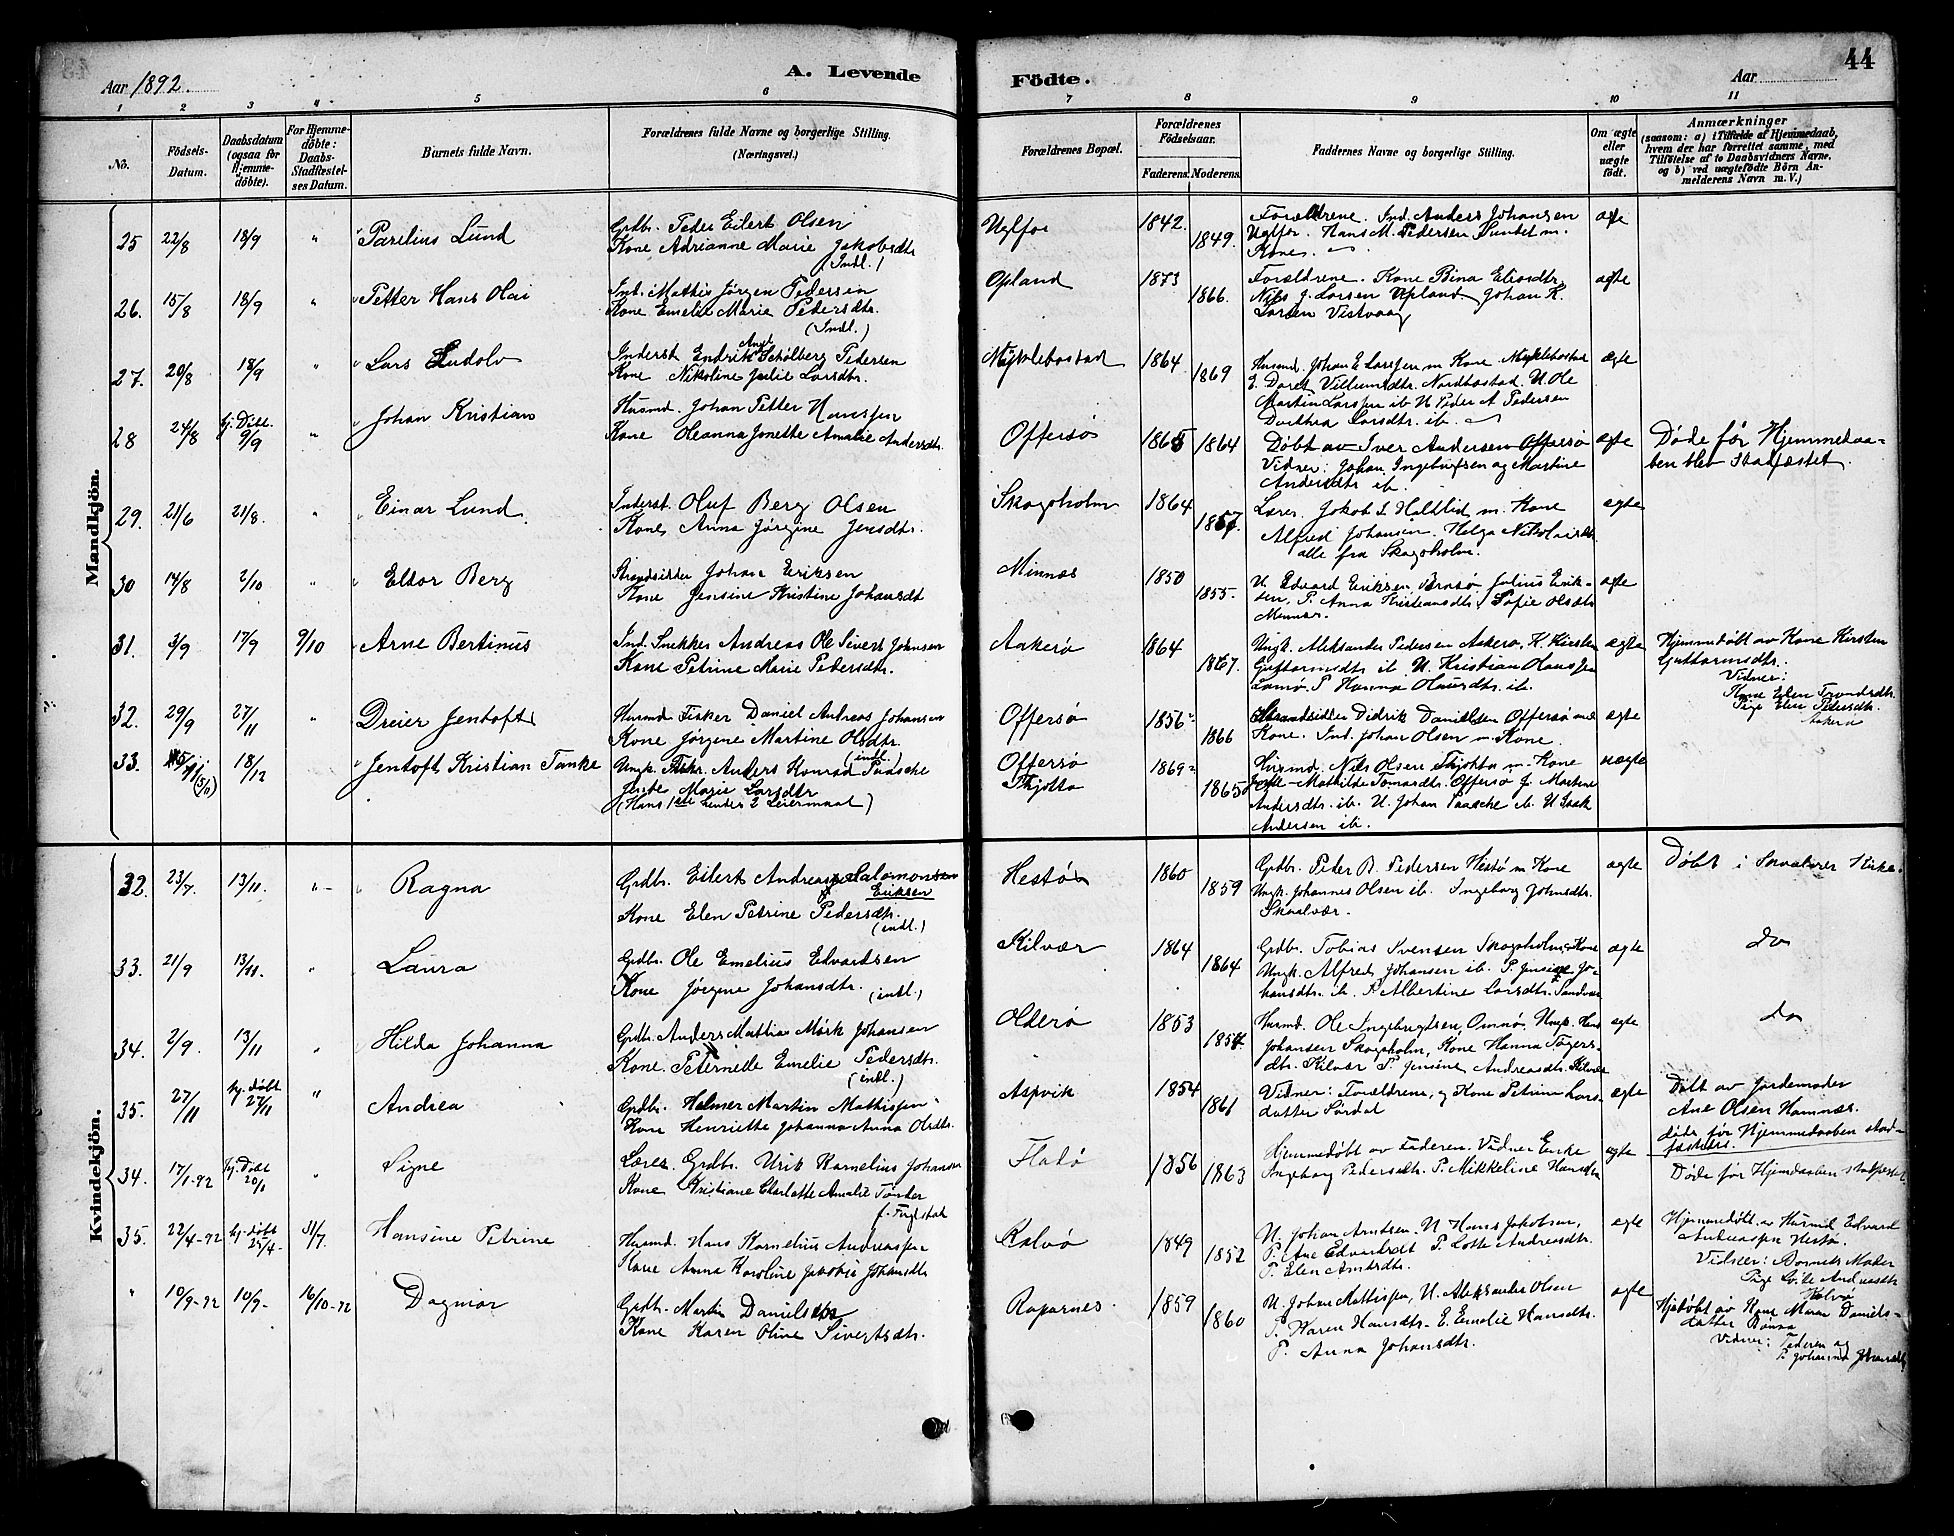 Aar 1892.
A. Levende
Födte.
Aar
44
1 2 3 4 5 6 7 8 9 10 11
No.
Födsels-
Datum.
Daabsdatum
(ogsaa for
Hjemme-
döbte).
For Hjemme-
döbte:
Daabs-
Stadfæstel-
ses Datum.
Barnets fulde Navn.
Forældrenes fulde Navne og borgerlige Stilling.
(Næringsvei.)
Forældrenes Bopæl.
Forældrenes
Födselsaar.
Faderens. Moderens.
Faddernes Navne og borgerlige Stilling.
Om ægte
eller
uægte
födt.
Anmærkninger
(saasom: a) i Tilfælde af Hjemmedaab,
hvem der har forrettet samme, med
Tilföielse af to Daabsvidners Navne,
og b) ved uægtefödte Börn An-
melderens Navn m. V.)
Mandkjön.
25 22/8 18/9 " Parelius Lund
Grdbr. Peder Eilert Olsen
Kone Adrianne Marie Jakobsdtr.
(Indl.)
1842. 1849.
Forældrene. Ind. Anders Johansen
Hans M. Pedersen Sundet m.
Kone.
ægte
26. 15/8 18/9 " Petter Hans Olai
Ind. Mathis Jørgen Pedersen
Kone Emelie Marie Pedersdtr.
(Indl.)
Opland 1873 1866.
Forældrene. Kone Bina Eliasdtr.
Nils J. Larsen Opland Johan K.
Larsen Vistvaag
ægte
27. 20/8 18/9 " Lars Ludolv
Inderst Endrik Schølberg Pedersen
Kone Nikoline Julie Larsdtr.
Myklebostad 1864 1869
Husmd. Johan E Larssen m Kone Myklebostad
E. Daret Villumsdtr. Nordbostad. U. Ole
Martin Larssen ib U Peder A Pedersen
Dorthea Larsdtr. ib.
ægte
28 24/8 hj. Döbt. 9/9 " Johan Kristian
Husmd. Johan Petter Hanssen
Kone Oleanna Jonette Amalie Andersdtr.
Offersø 1865 1864
Døbt av Iver Andersen Offersø
Vidner: Johan Ingebrigtsen og Martine
Andersdtr ib.
ægte
Døde før Hjemmedaa-
ben blev stadfæstet.
29. 21/6 21/8. " Einar Lund.
Inderst. Oluf Berg Olsen
Kone Anna Jørgine Jensdtr.
Skogsholm 1864 1857
Lærer. Jakob L Holtlid m. Kone
Alfred Johansen. Helga Nikolaisdtr.
alle fra Skogsholm.
ægte
30 14/8 2/10 " Eldor Berg
Strandsidder Johan Eriksen
Kone Jensine Kristine Johansdt
Minnæs 1850 1855.
U. Edvard Eriksen Julius Erik-
sen, P. Anna Kristiansdtr. Sofie Olsdtr
ægte
31. 3/9 17/9 9/10 Arne Bertinus
Ind. Snekker Andreas Ole Sivert Johnsen
Kone Petrine Marie Pedersdtr.
Aakerø 1864 1867.
Ungk. Aleksander Pedersen Aakerø. K. Kirsten
Guttormsdtr ib U. Kristian Hanssen
P Hanna Hansdtr. ib.
ægte
Hjemmedøbt av Kone Kirsten
Guttormsdtr.
Vidner:
Kone Elen Trondsdtr.
Pige Elen Pedersdtr.
Aakerø
32. 29/9 27/11 " Dreier Jentoft
Husmd Fisker Daniel Andreas Johansen
Kone Jørgine Martine Olsdtr.
(indl.)
Offersø 1856 1866
Strandsidder Didrik Danielsen Offersø med
Kone. Ind. Johan Olsen m. Kone
ægte
33. 18/12 Jentoft Kristian Tanke
Ungk. Fisker. Anders Konrad Paasche
Marie Larsdtr
(Hans 1ste hendes 2 Leiermaal)
Offersø
Thjotta
1869 1865
Husmd. Nils Olsen Thjotta m. Kone
Mathilde Tomasdtr. Offersø J. Martine
Andersdtr. ib. U. Johan Paasche ib. U Isak
Andersen ib.
uægte
Kvindekjön.
32. 23/7. 13/11. " Ragna
Grdbr. Eilert Andreas Salomonsen
Eriksen
Kone Elen Petrine Pedersdtr.
(indl.)
Hestøn 1860 1859
Grdbr. Peder B. Pedersen Hestø m Kone
Ungk. Johannes Olsen ib. Ingeborg Johnsdtr.
Skaalvær.
ægte
Døbt i Skaalvær Kirke.
33. 21/9 13/11. " Laura
Grdbr. Ole Emelius Edvardsen
Kone Jørgine Johansdtr.
(indl.)
Kilvær 1864 1864
Grdbr. Tobias Svensen Skogsholm Kone
Ungk. Alfred Johansen ib. P. Jensine Jo-
hansdtr. ib. P Albertine Larsdtr. Sandvær
ægte
do
34. 2/9. 13/11 " Hilda Johanna
Grdbr. Anders Mathias Mørk Johansen
Kone. Peternelle Emelie Pedersdtr.
(indl.)
Olderø 1853 1854.
Husmd. Ole Ingebrigtsen, Omnø. Ungk. Hans
Johansen Skogsholm, Kone Hanna
dtr. Kilvær P. Jensine Andreasdtr. Kilvær
ægte
do
35. 27/11 hj. döbt 27/11 " Andrea
Grdbr. Helmer Martin Mathissen
Kone Henriette Johanna Anna Olsdtr.
Aspvik 1854 1861
Vidner: Forældrene, og Kone Petrine Lars-
datter Sørdal
ægte
Døbt av Jordemoder
Ane Olsen Hamnæs.
døde før Hjemmedaaben stad-
fæstedes.
34. 17/1-92 hj. Döbt 20/1 " Signe
Lærer. Grdbr. Ulrik Kornelius Johansen
Kone Kristiane Charlotte Amalie Tønder
f. Fuglstad
Flatø 1856 1863
Hjemmedøbt av Faderen. Vidner Enke
Ingeborg Pedersdtr. P. Mikkeline Hansdtr
ægte
Døde før Hjemdaaben stadfæstet.
35. 22/4-92 hj. døbt 25/4- 31/7. Hansine Petrine
Husmd. Hans Kornelius Andreassen
Kone Anna Karoline Jakobie Johansdtr
Kalvø 1849 1852
U. Johan Arntsen. U Hans Jakobsen,
P. Ane Edvardsdt P. Lotte Andreasdtr.
P. Elen Arntsdtr.
ægte
Hjemmedøbt av Husmd Edvard
Andreassen Hestø.
Vidner: Barnets Moder
Pige Andreasdtr
Kalvø
" 10/9-92 10/9- 16/10-92 Dagmar
Grdbr. Martin Danielsen
Kone Karen Oline Sivertsdtr.
Raparnes. 1859 1860
U. Johan Mathissen, U. Aleksander Olsen
P. Karen Hansdtr. E. Emelie Hansdtr.
P. Anna Johansdtr.
ægte
Hjdøbt av Kone Maren Daniels-
datter Rønsa
Vidner: Faderen og
P. Johanna